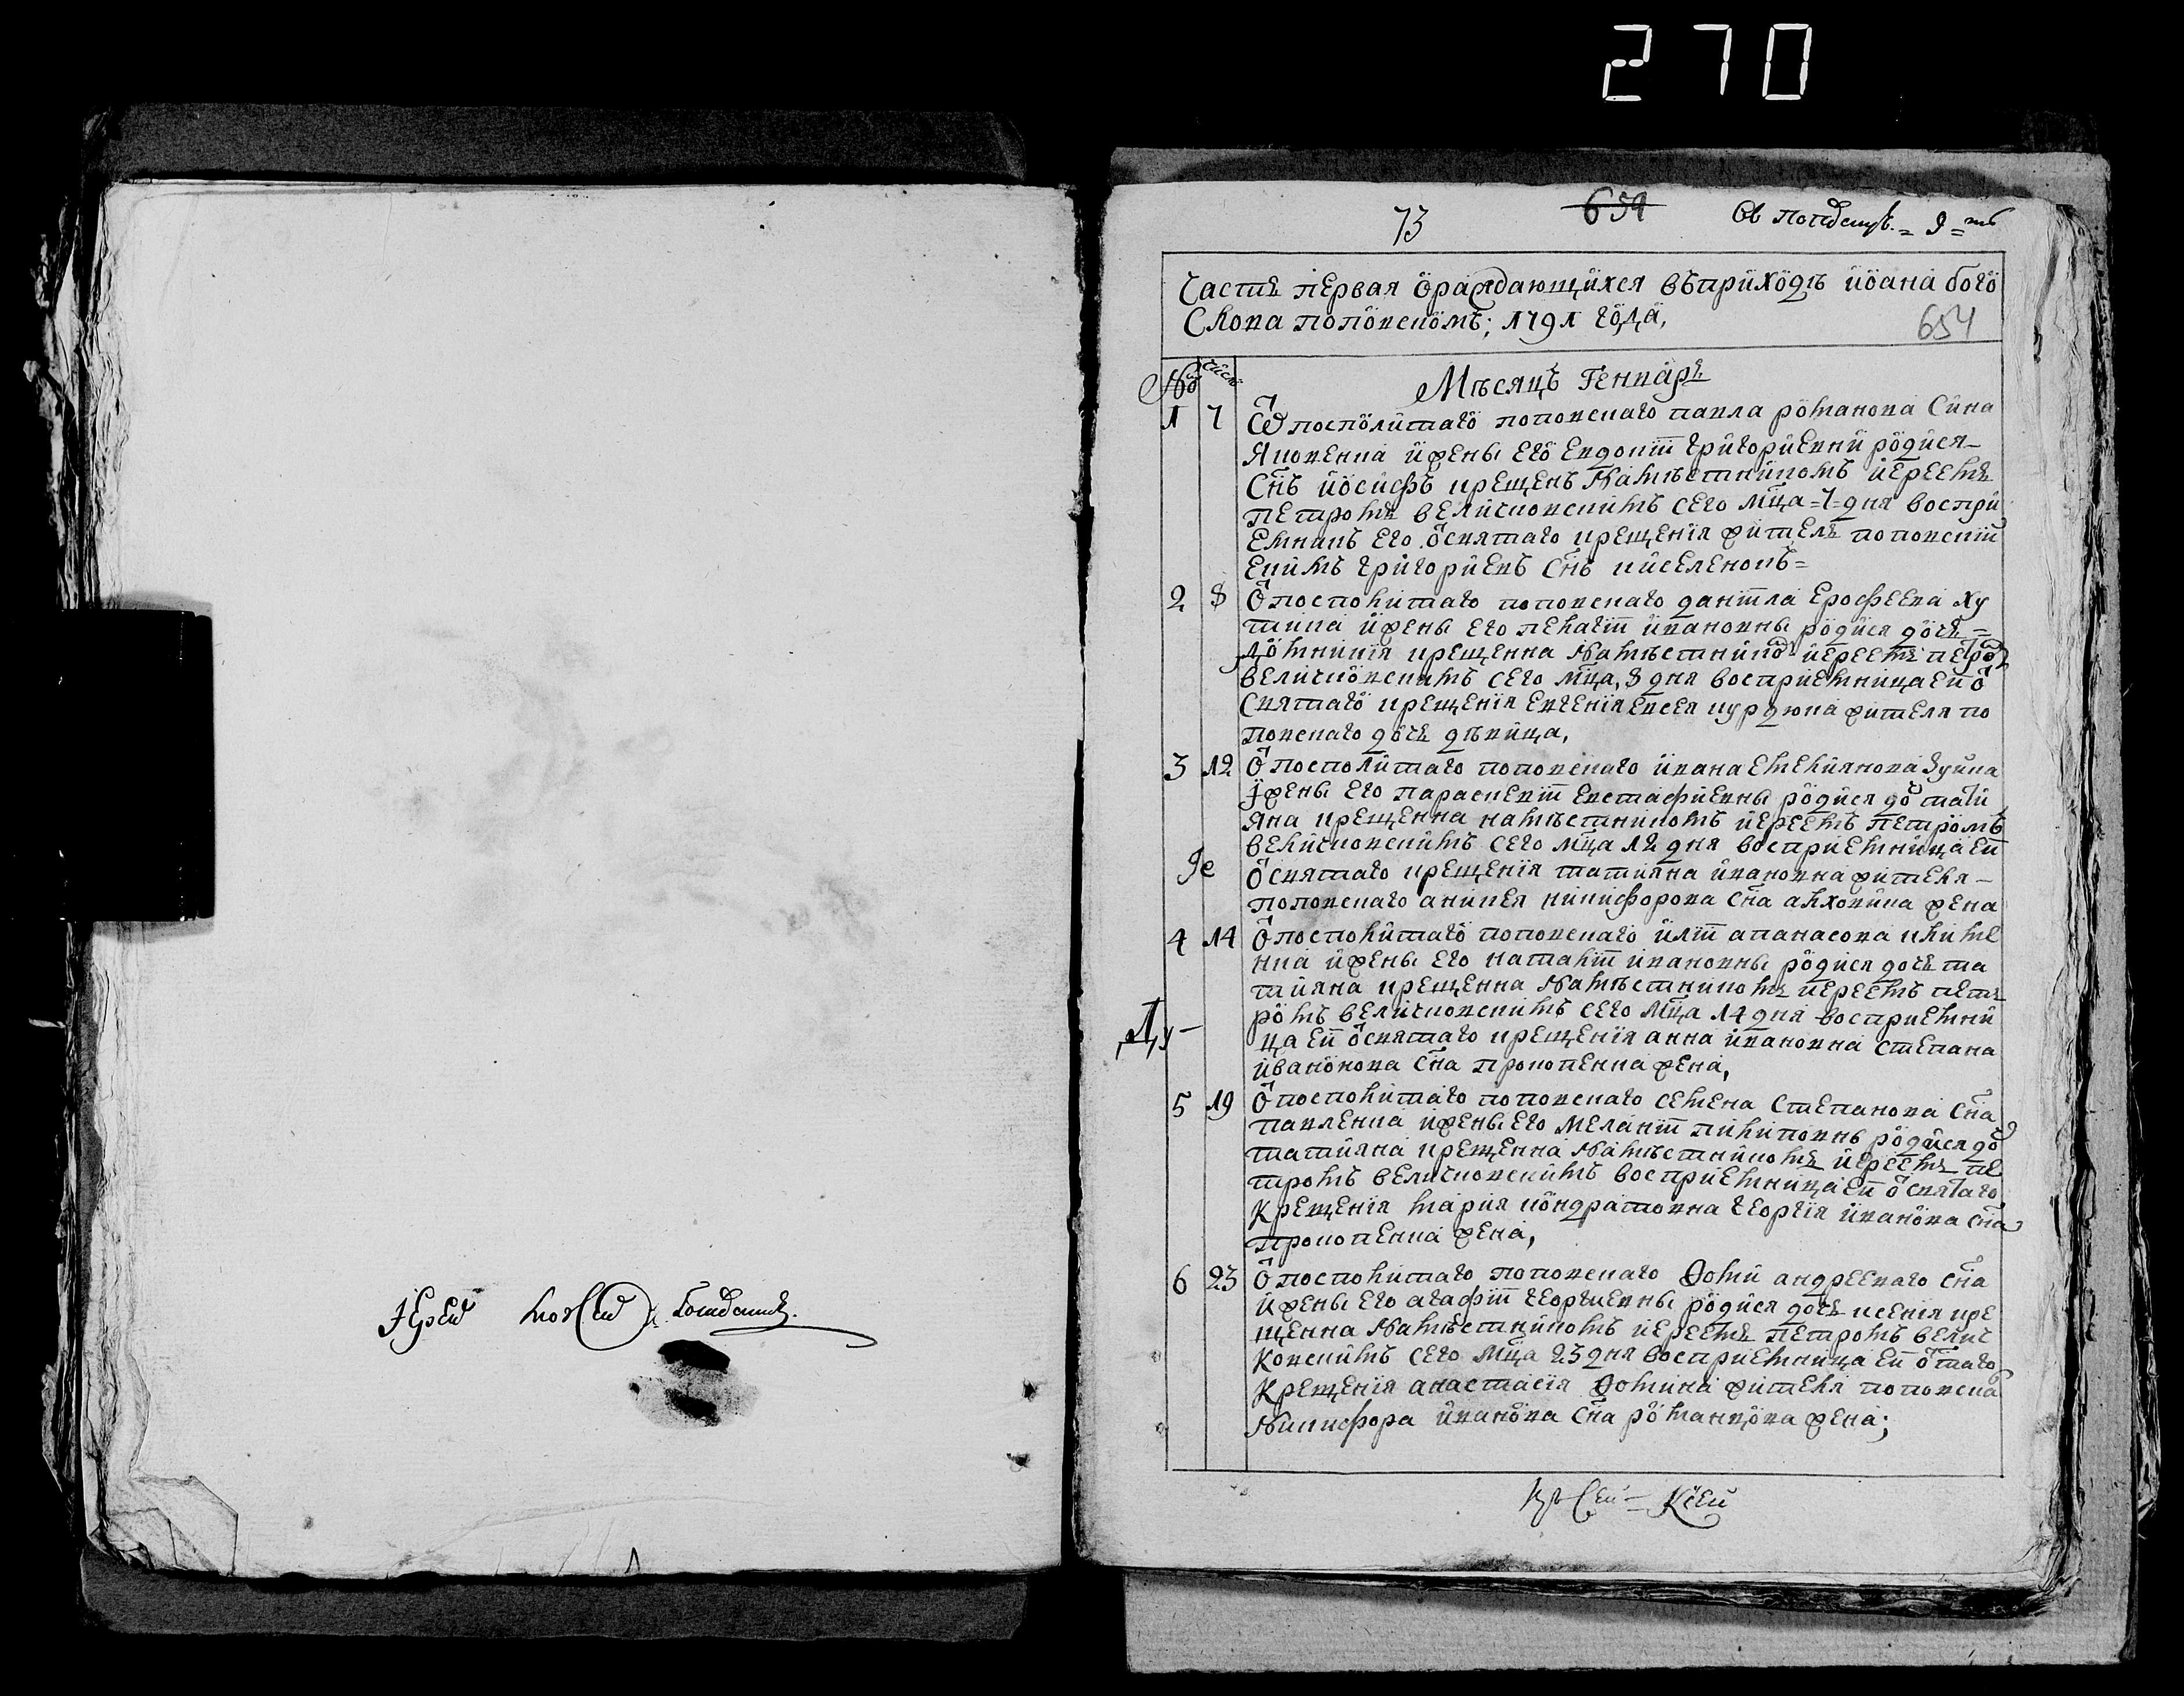 270
Иерей
73
654
Часть первая ӧраждающи̋хся въприхӧдѣ иӧана бого
Слова попӧвскӧмъ; 1791 гӧда,
654
№ числ
Мѣсяцъ Генварь
1 7 Ѿ посполитаго поповскаго павла романова Сина
Яковенка и жены его евдокїи григориевни родися
Сн҃ъ иосифъ крещенъ Намѣстникомъ иереемъ
петромъ величковскимъ сего мц҃а =7= дня воспри
емникъ его ѿ святаго крещенїя житель поповский
ефимъ григориевъ Сн҃ъ киселеновъ=
2 8 Ѿ посполитаго поповскаго данїила ерофеева ху
тика и жены его пелагїи ивановны родися дочь =
домникїя крещенна Намѣстникомъ иереемъ петромъ
величковскимъ сего мц҃а, 8 дня восприемница ей ѿ
Святаго крещенїя евгенїя евсея курдюка жителя по
повскаго дочь дѣвица,
3 12 Ѿ посполитаго поповскаго ивана емелиянова зуйка
и жены его параскевїи евстафиевны родися дочь тати
яна крещенна намѣстникомъ иереемъ петромъ
величковскимъ сего мц҃а 12 дня восприемница ей
ѿ святаго крещенїя татияна ивановна жителя
поповскаго аникея никифорова Сн҃а алховика жена
4 14 Ѿ посполитаго поповскаго илїи апанасова климе
нка и жены его наталїи ивановны родися дочь та
тияна крещенна Намѣстникомъ иереемъ пет
ромъ величковскимъ сего мц҃а 14 дня восприемни
ца ей ѿ святаго крещенїя анна ивановна степана
иванонова Сн҃а прокопенка жена,
5 19 Ѿ посполитаго поповскаго семена степанова Сн҃а
павленка и жены его меланїи пилиповны родися до
татияна крещенна Намѣстникомъ иереемъ пе
тромъ величковскимъ восприемница ей ѿ святаго
Крещенїя мария кондратовна георгїя иванова сн҃а
прокопенка жена,
6 23 Ѿ посполитаго поповскаго Ѳоми андрееваго сн҃а
и жены его агафїи георгиевны родися дочь ксенїя кре
щенна Намѣстникомъ иереемъ петромъ велич
ковскимъ сего мц҃а 23 дня восприемница ей ѿ таго
Крещенїя анастасїя Ѳомина жителя поповска
Никифора иванова Сн҃а романцова жена;